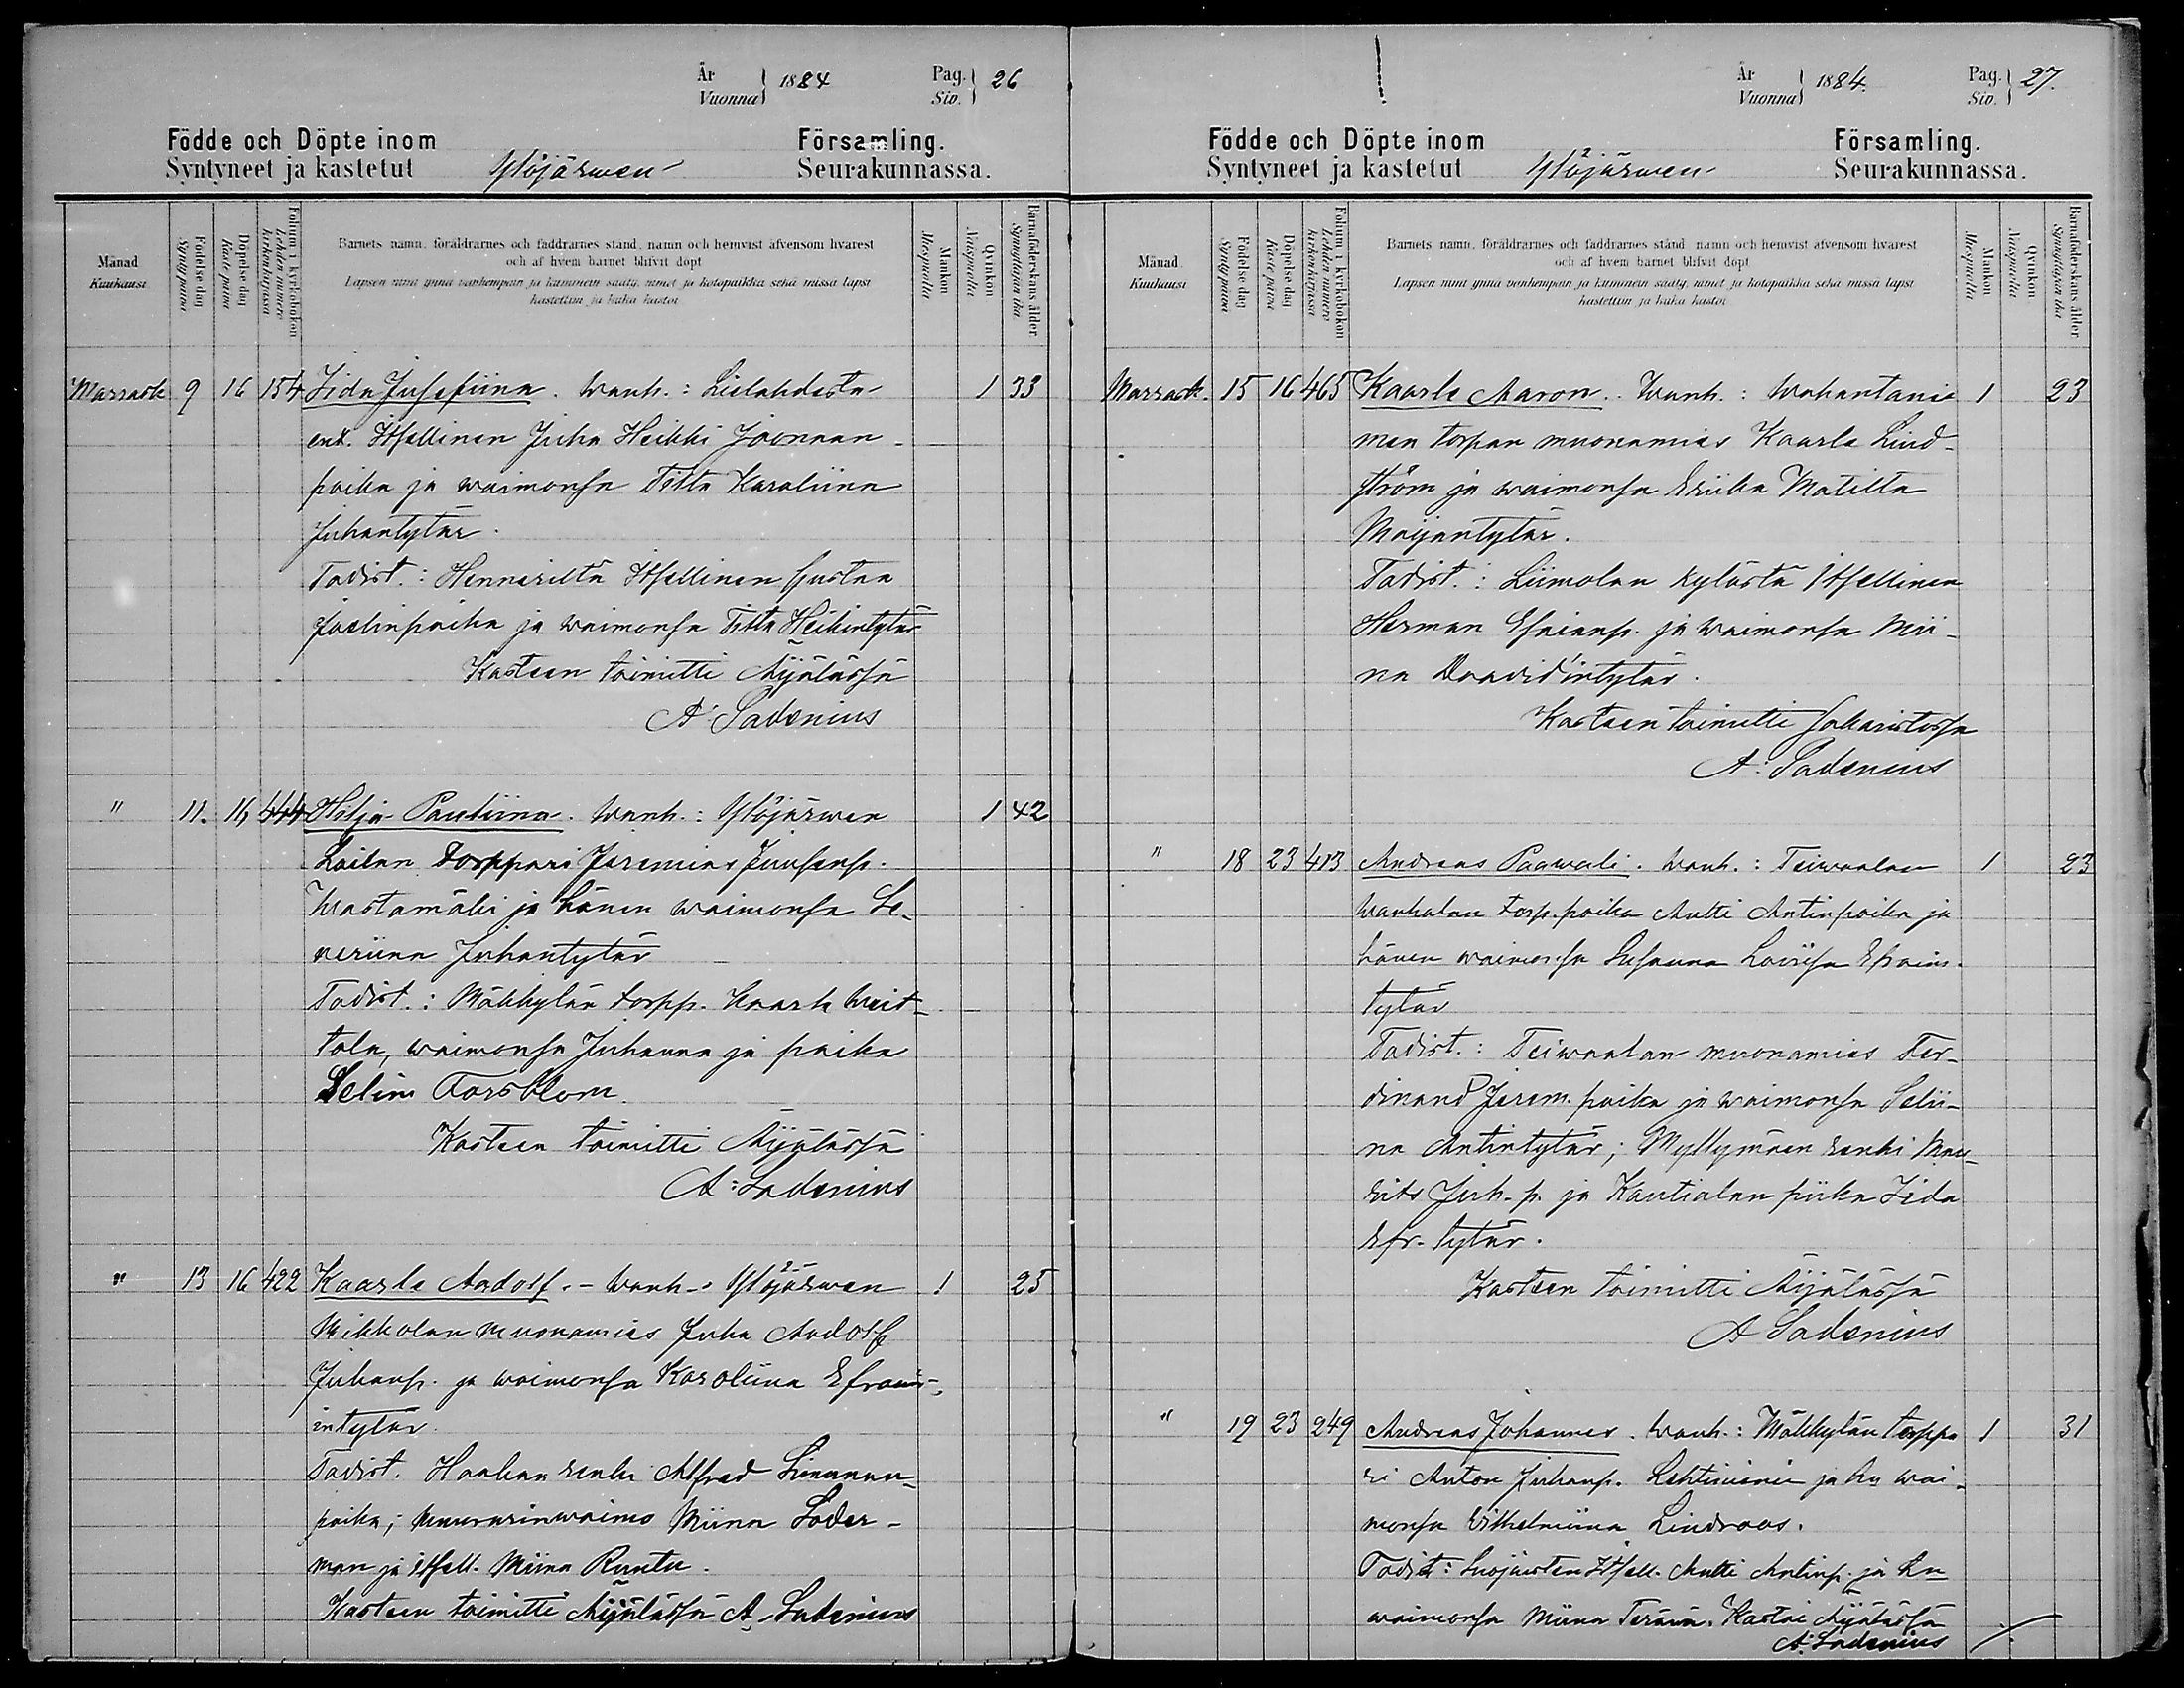 År
Vuonna } 1884
Pag.
Siv. } 26
Födde och Döpte inom Församling.
Syntyneet ja kastetut Ylöjärwen Seurakunnassa.
Månad
Kuukausi
Födelse dag
Synty päivä
Döpelse dag
Kaste päivä
Folium i kyrkoboken
Lehden numero kirkonkirjassa
Barnets namn, föräldrarnes och faddrarnes stånd, namn och hemvist äfvensom hvarest
och af hvem barnet blifvit döpt
Lapsen nimi ynnä vanhempain ja kummein sääty, nimet ja kotopaikka sekä missä lapsi
kastettiin ja kuka kastoi
Mankön
Miespuolia
Qvinkön
Naispuolia
Barnaföderskans ålder
Synnyttäjän ikä
Marrask. 9 16 154 Iida Josefiina. Wanh.: Lielahdesta 1 33
ent. Itsellinen Juha Heikki Joonaan
poika ja waimonsa Fiita Karoliina
Juhantytär.
Todist.: Henneriltä Itsellinen Gustaa
Joelinpoika ja waimonsa Fiita Heikintytär
Kasteen toimitti Äijälässä
A. Sadenius
" 11. 16 444 Hilja Pauliina. Wanh.: Ylöjärwen 1 42
Loilan Torppari Jeremias Juusenp.
Wastamäki ja hänen waimonsa Se-
veriina Juhantytär
Todist.: Mäkkylän torpp. Kaarle Weit-
tola, waimonsa Johanna ja poika
Selim Forsblom.
Kasteen toimitti Äijälässä
A: Sadenius
" 13 16 422 Kaarle Aadolf. - Wanh.: Ylöjärwen 1 25
Mikkolan muonamies Juha Aadolf
Juhanp. ja waimonsa Karoliina Efraim-
intytär.
Todist. Haaban renki Alfred Simunan-
poika; muurarinwaimo Miina Söder-
man ja itsell. Miina Runtu.
Kasteen toimitti Äijälässä A. Sadenius
År
Vuonna } 1884.
Pag.
Siv. } 27.
Födde och Döpte inom Församling.
Syntyneet ja kastetut Ylöjärwen Seurakunnassa.
Månad
Kuukausi
Födelse dag
Synty päivä
Döpelse dag
Kaste päivä
Folium i kyrkoboken
Lehden numero kirkonkirjassa
Barnets namn, föräldrarnes och faddrarnes stånd, namn och hemvist äfvensom hvarest
och af hvem barnet blifvit döpt
Lapsen nimi ynnä vanhempain ja kummein sääty, nimet ja kotopaikka sekä missä lapsi
kastettiin ja kuka kastoi
Mankön
Miespuolia
Qvinkön
Naispuolia
Barnaföderskans ålder
Synnyttäjän ikä
Marrask. 15 16 465 Kaarle Aaron. Wanh.: Wahantanie 1 23
men torpan muonamies Kaarle Lind-
ström ja waimonsa Eriika Matilta
Maijantytär.
Todist.: Liimolan kylästä Itsellinen
Herman Esaianp. ja waimonsa Mii-
na Daavidintytär.
Kasteen toimitti
A: Sadenius
" 18 23 413 Andreas Paawali. Wanh.: Teiwaalan 1 23
Wanhalan torp. poika Antti Antinpoika ja
hänen waimonsa Susanna Lowiisa Efraim-
tytär
Todist.: Teiwaalan muonamies Fer-
dinand Jerem. poika ja waimonsa Selii-
na Antintytär; Myllymäen renki Mau-
rits Juh. p. ja Kantialan piika Iida
Efr. tytär.
Kasteen toimitti Äijälässä
A Sadenius
" 19 23 249 Andreas Johannes. Wanh.: Mäkkylän torppa 1 31
ri Anton Juhanp. Lehtiniemi ja hn wai-
monsa Wilhelmiina Lindroos.
Todist: Itsell. Antti Antinp. ja hn
waimonsa Miina Kastoi Äijälässä
A: Sadenius